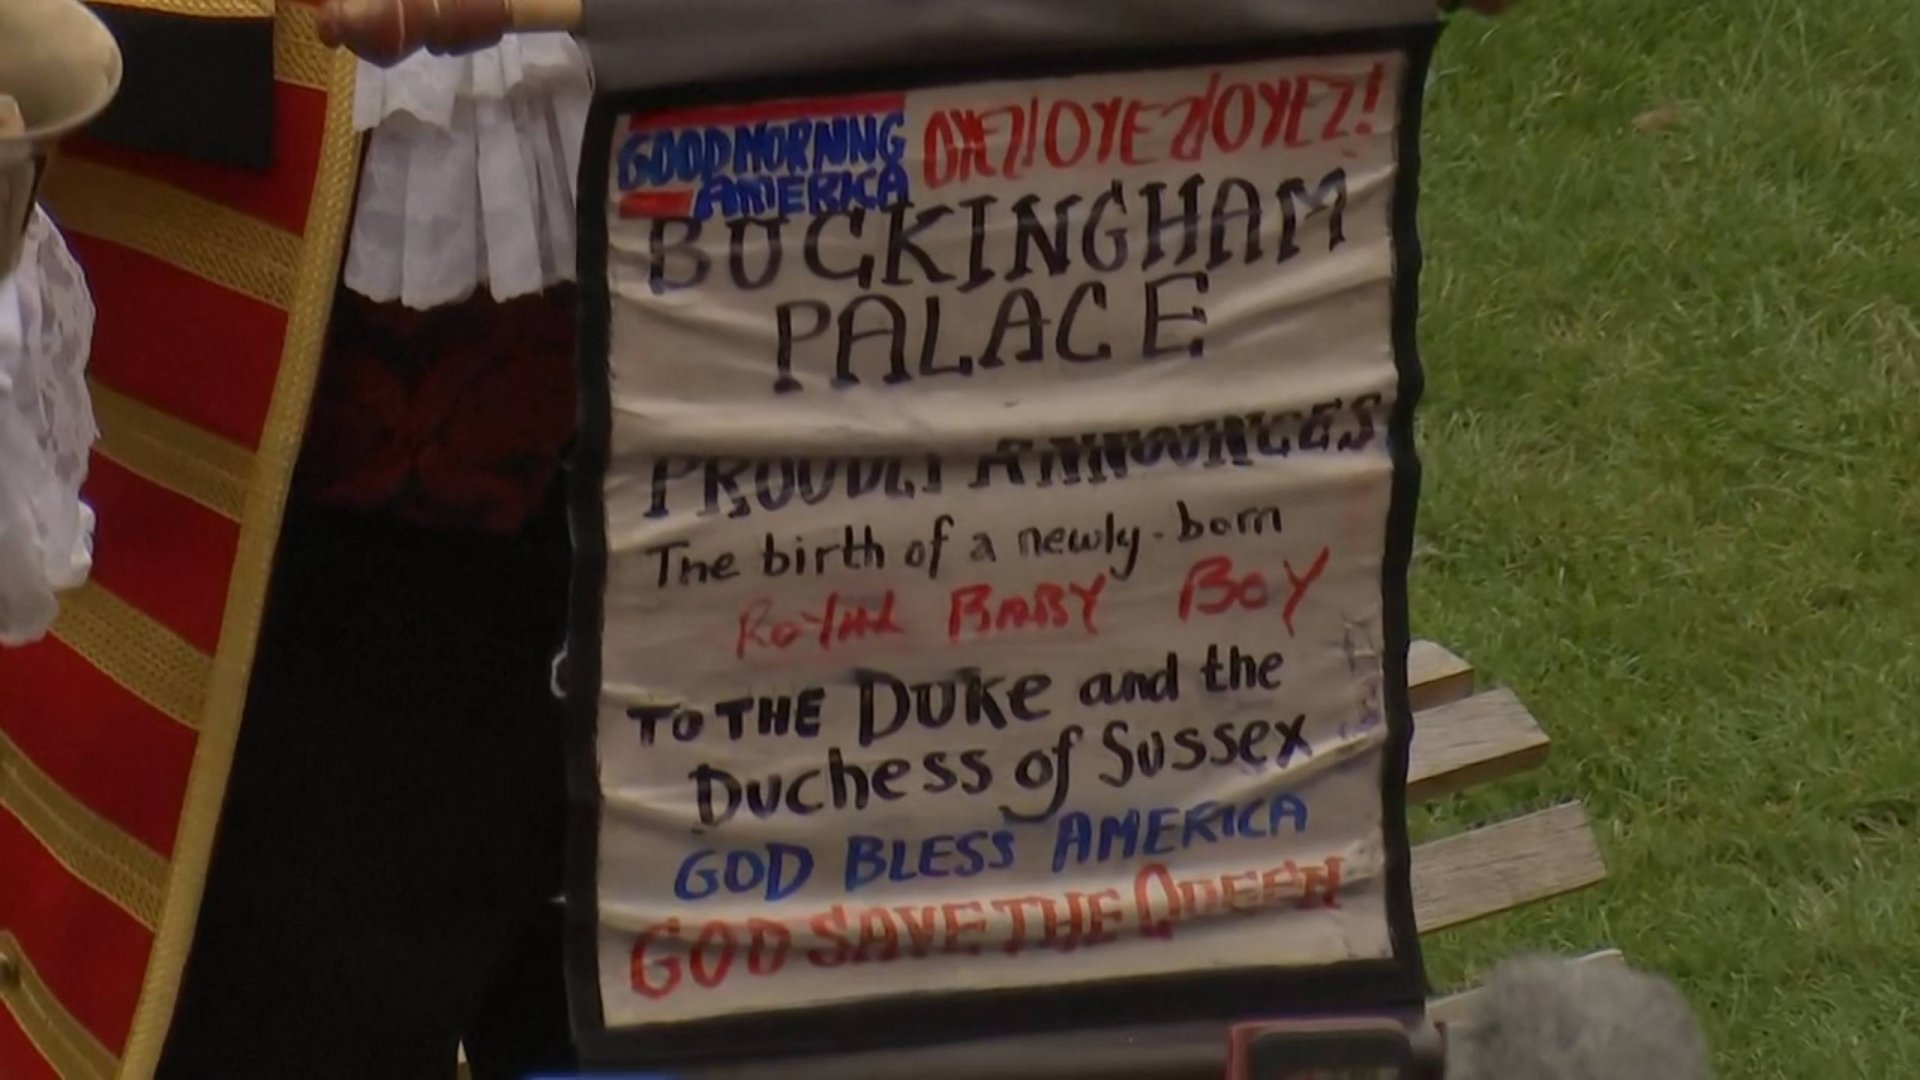 GOOD MORNING OYEZ! OYEZ! OYEZ!
AMERICA
BUCKINGHAM
PALACE
PROUDLY ANNOUNCES
The birth of a newly-born
ROYAL BABY BOY
TO THE DUKE and the
Duchess of Sussex
GOD BLESS AMERICA
GOD SAVE THE QUEEN